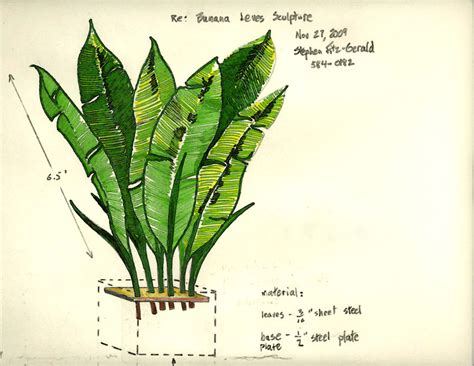 Re: Banana Leves Sculpture
Nov 27, 2009
Stephen Fitz-Gerald
584-0182
6.5'
material:
leaves - 3/16" sheet steel
base - 1/2" steel plate
plate